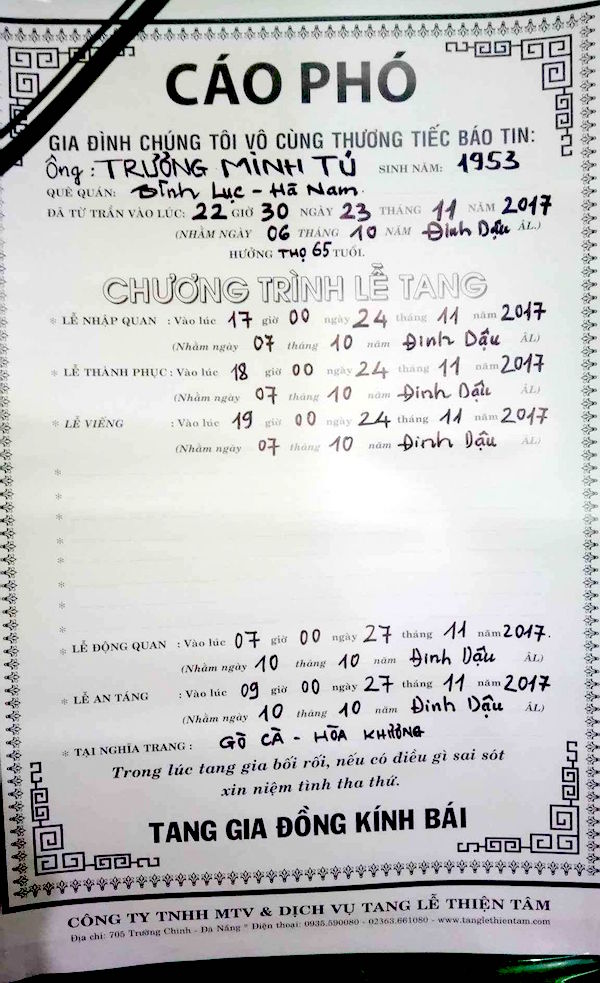 CÁO PHÓ
GIA ĐÌNH CHÚNG TÔI VÔ CÙNG THƯƠNG TIẾC BÁO TIN:
Ông : TRƯƠNG MINH TÚ SINH NĂM: 1953
QUÊ QUÁN: Bình Lục - Hà Nam.
ĐÃ TỪ TRẦN VÀO LÚC: 22 GIỜ 30 NGÀY 23 THÁNG 11 NĂM 2017
(NHẰM NGÀY 06 THÁNG 10 NĂM Đinh Dậu ÂL.)
HƯỞNG THỌ 65 TUỔI.
CHƯƠNG TRÌNH LỄ TANG
* LỄ NHẬP QUAN : Vào lúc 17 giờ 00 ngày 24 tháng 11 năm 2017
(Nhằm ngày 07 tháng 10 năm Đinh Dậu ÂL)
* LỄ THÀNH PHỤC : Vào lúc 18 giờ 00 ngày 24 tháng 11 năm 2017
(Nhằm ngày 07 tháng 10 năm Đinh Dậu ÂL)
* LỄ VIẾNG : Vào lúc 19 giờ 00 ngày 24 tháng 11 năm 2017
(Nhằm ngày 07 tháng 10 năm Đinh Dậu ÂL)
*
*
*
*
*
*
*
* LỄ ĐỘNG QUAN : Vào lúc 07 giờ 00 ngày 27 tháng 11 năm 2017.
(Nhằm ngày 10 tháng 10 năm Đinh Dậu ÂL)
* LỄ AN TÁNG : Vào lúc 09 giờ 00 ngày 27 tháng 11 năm 2017
(Nhằm ngày 10 tháng 10 năm Đinh Dậu ÂL)
* TẠI NGHĨA TRANG : GÒ CÀ - HÒA KHƯƠNG
Trong lúc tang gia bối rối, nếu có điều gì sai sót
xin niệm tình tha thứ.
TANG GIA ĐỒNG KÍNH BÁI
CÔNG TY TNHH MTV & DỊCH VỤ TANG LỄ THIỆN TÂM
Địa chỉ: 705 Trường Chinh - Đà Nẵng * Điện thoại: 0935.590080 - 02363.661080 - www.tanglethientam.com